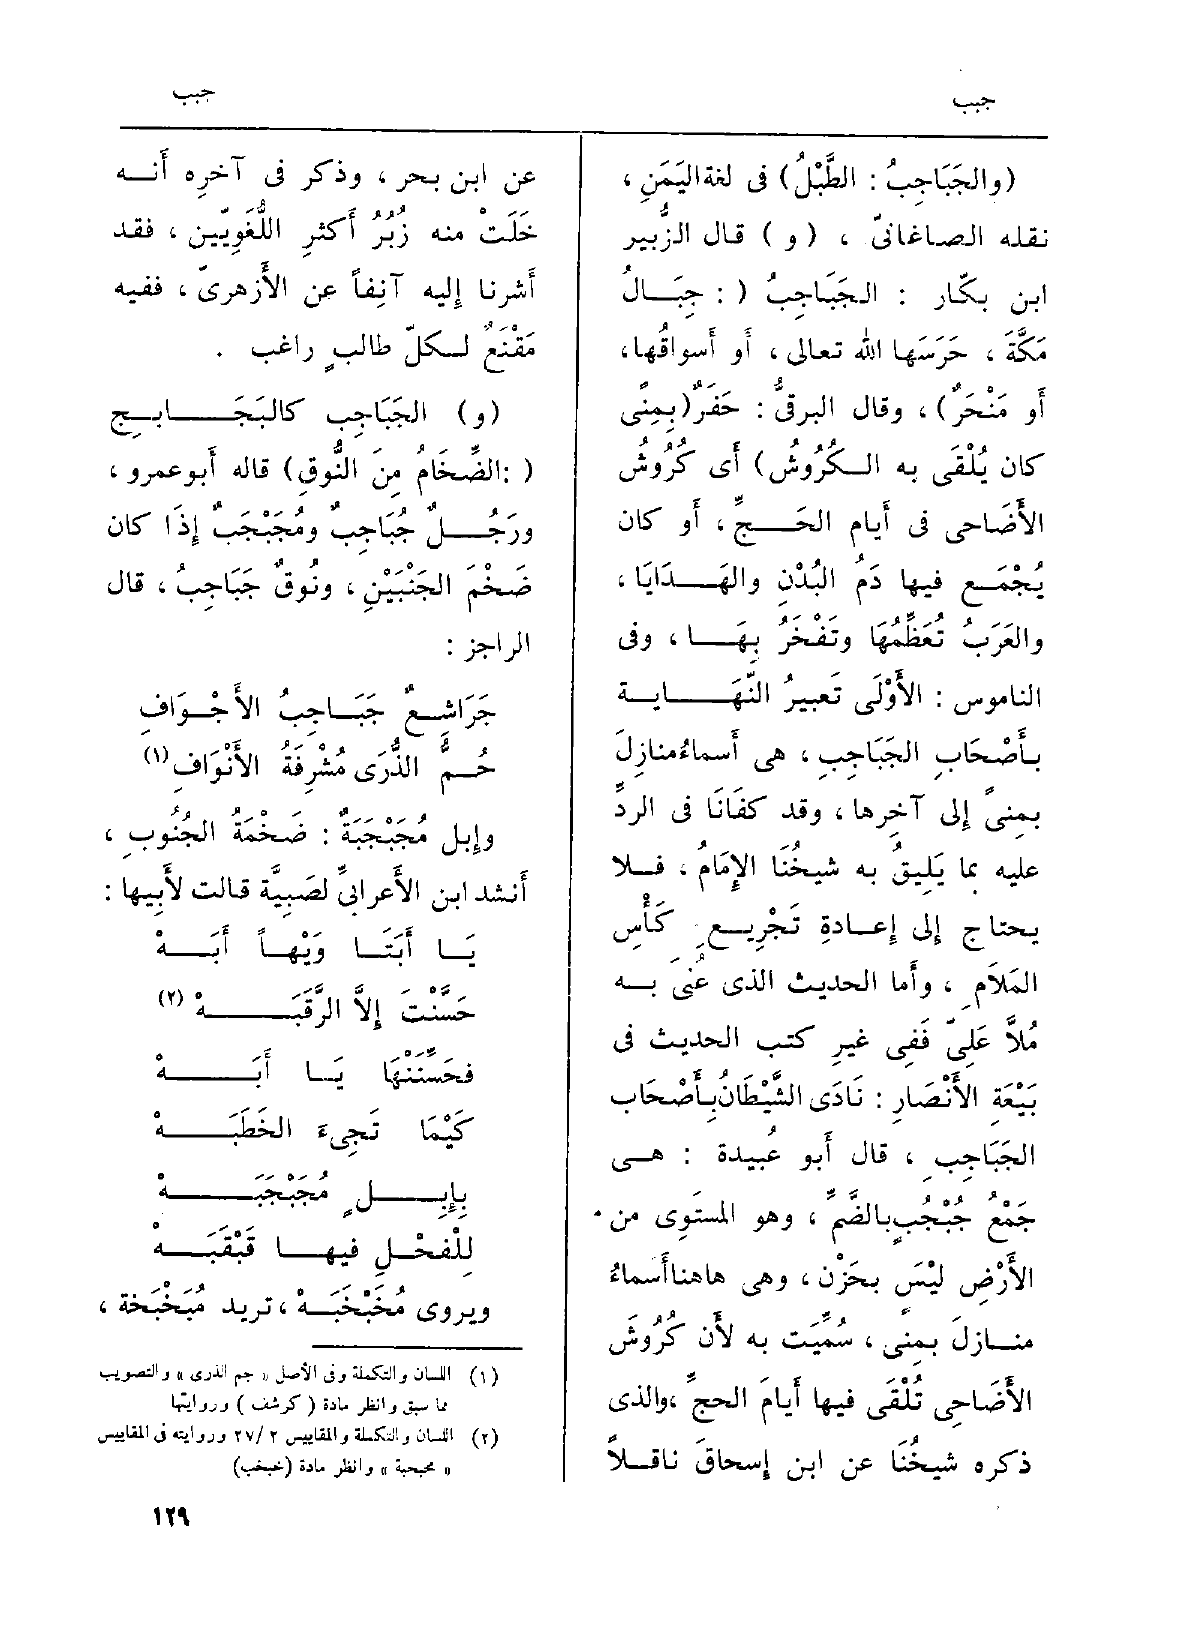 جبب
جبب
(والجَبَاجِبُ : الطَّبْلُ) فى لغة اليَمَنِ ،
نقله الصاغانىّ ، ( و ) قال الزُّبير
ابن بكّار : الجَبَاجِبُ ( : جِبَـالُ
مَكَّةَ ، حَرَسَها الله تعالى ، أَو أَسواقُها،
أَو مَنْحَرٌ) ، وقال البرقىُّ : حَفَرٌ (بِمِنًى
كان يُلْقَى به الـكُرُوشُ) أَى كُرُوشُ
الأَضَاحى فى أَيام الحَــجِّ ، أَو كان
يُجْمَـع فيها دَمُ البُدْنِ والهَـدَايَا ،
والعَرَبُ تُعَظِّمُهَا وتَفْخَرُ بِهَـا ، وفى
الناموس : الأَوْلَى تَعبيرُ النِّهَـايـة
بأَصْحَابِ الجَبَاجِبِ ، هى أَسماءُ منازلَ
بمِنًى إِلى آخرها ، وقد كَفَانَا فى الردِّ
عليه بما يَلِيقُ به شيخُنَا الإِمَامُ ، فـلا
يحتاج إِلى إِعـادةِ تَجْرِيـعِ كَأْسِ
المَلَامِ ، وأَما الحديث الذى عُنِى بـه
مُلَّا عَلِىّ فَفِى غيرِ كتب الحديث فى
بَيْعَةِ الأَنْصَارِ : نَادَى الشَّيْطَانُ بأَصْحَاب
الجَبَاجِبِ ، قال أَبو عُبيدة : هـى
جَمْعُ جُبْجُبٍ بالضَّمِّ ، وهو المستَوِى من
الأَرْضِ لَيْسَ بحَزْن ، وهى هاهنا أَسماءُ
منـازلَ بمِنًى ، سُمِّيَت به لأَن كُرُوشَ
الأَضَاحِى تُلْقَى فيها أَيامَ الحجِّ ، والذى
ذكره شيخُنَا عن ابن إِسحاقَ ناقـلاً
عن ابن بحر ، وذكر فى آخرِه أَنـه
خَلَتْ منه زُبُرُ أَكثرِ اللُّغَويّين ، فقد
أَشرنا إِليه آنِفاً عن الأَزهرىّ ، ففيه
مَقْنَعٌ لـكلّ طالبٍ راغب .
(و) الجَبَاجِب كالبَجَـابِـج
( :الضِّخَامُ مِنَ النُّوقِ) قاله أَبو عمرو ،
ورَجُـلٌ جُبَاجِبٌ ومُجَبْجَبٌ إِذَا كان
ضَخْمَ الجَنْبَيْنِ ، ونُوقٌ جَبَاجِبُ ، قال
الراجز :
جَرَاشِـعٌ جَبَـاجِبُ الأَجْـوَافِ
حُـمُّ الذُّرَى مُشْرِفَةُ الأَنْوَافِ (١)
وإِبل مُجَبْجَبَةٌ : ضَخْمَةُ الجُنُوبِ ،
أَنشد ابن الأَعرابىِّ لصَبِيَّة قالت لأَبِيها :
يَـا أَبَتَـا وَيْهـاً أَبَـهْ
حَسَّنْتَ إِلاَّ الرَّقَبَــهْ (٢)
فحَسِّنَنْهَا يَـا أَبَــهْ
كَيْمَا تَجِىءَ الخَطَبَــهْ
بِإِبِـلٍ مُجَبْجَبَــهْ
لِلْفَحْـلِ فيهـا قَبْقَبَــهْ
ويروى مُخَبْخَبَـهْ ، تريد مُبَخْبَخة ،
(١) اللسان والتكملة وفى الأصل « جم الذرى » والتصويب
مما سبق وانظر مادة ( كرشف ) وروايتها
(٢) اللسان والتكملة والمقاييس ٢ /٢٧ وروايته فى المقاييس
« مجبجبة » وانظر مادة (خبخب)
١٢٩